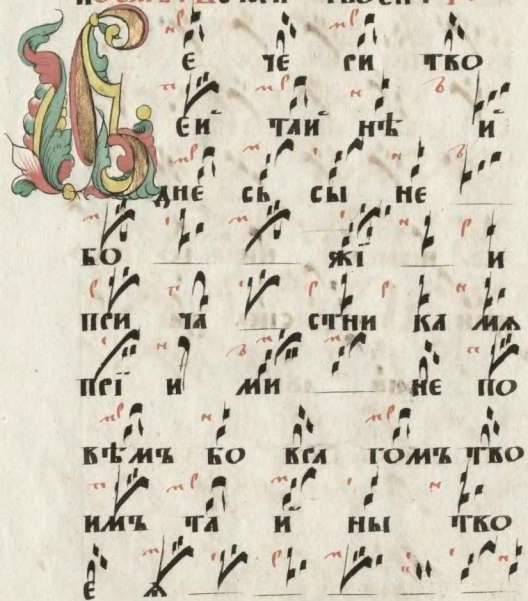 В е че ри тво
еи таи нѣ и
дне сь сы не
бо жі и
при ча стни ка мѧ
прі и ми не по
вѣмъ бо вра гомъ тво
имъ та и ны тво
е ѧ